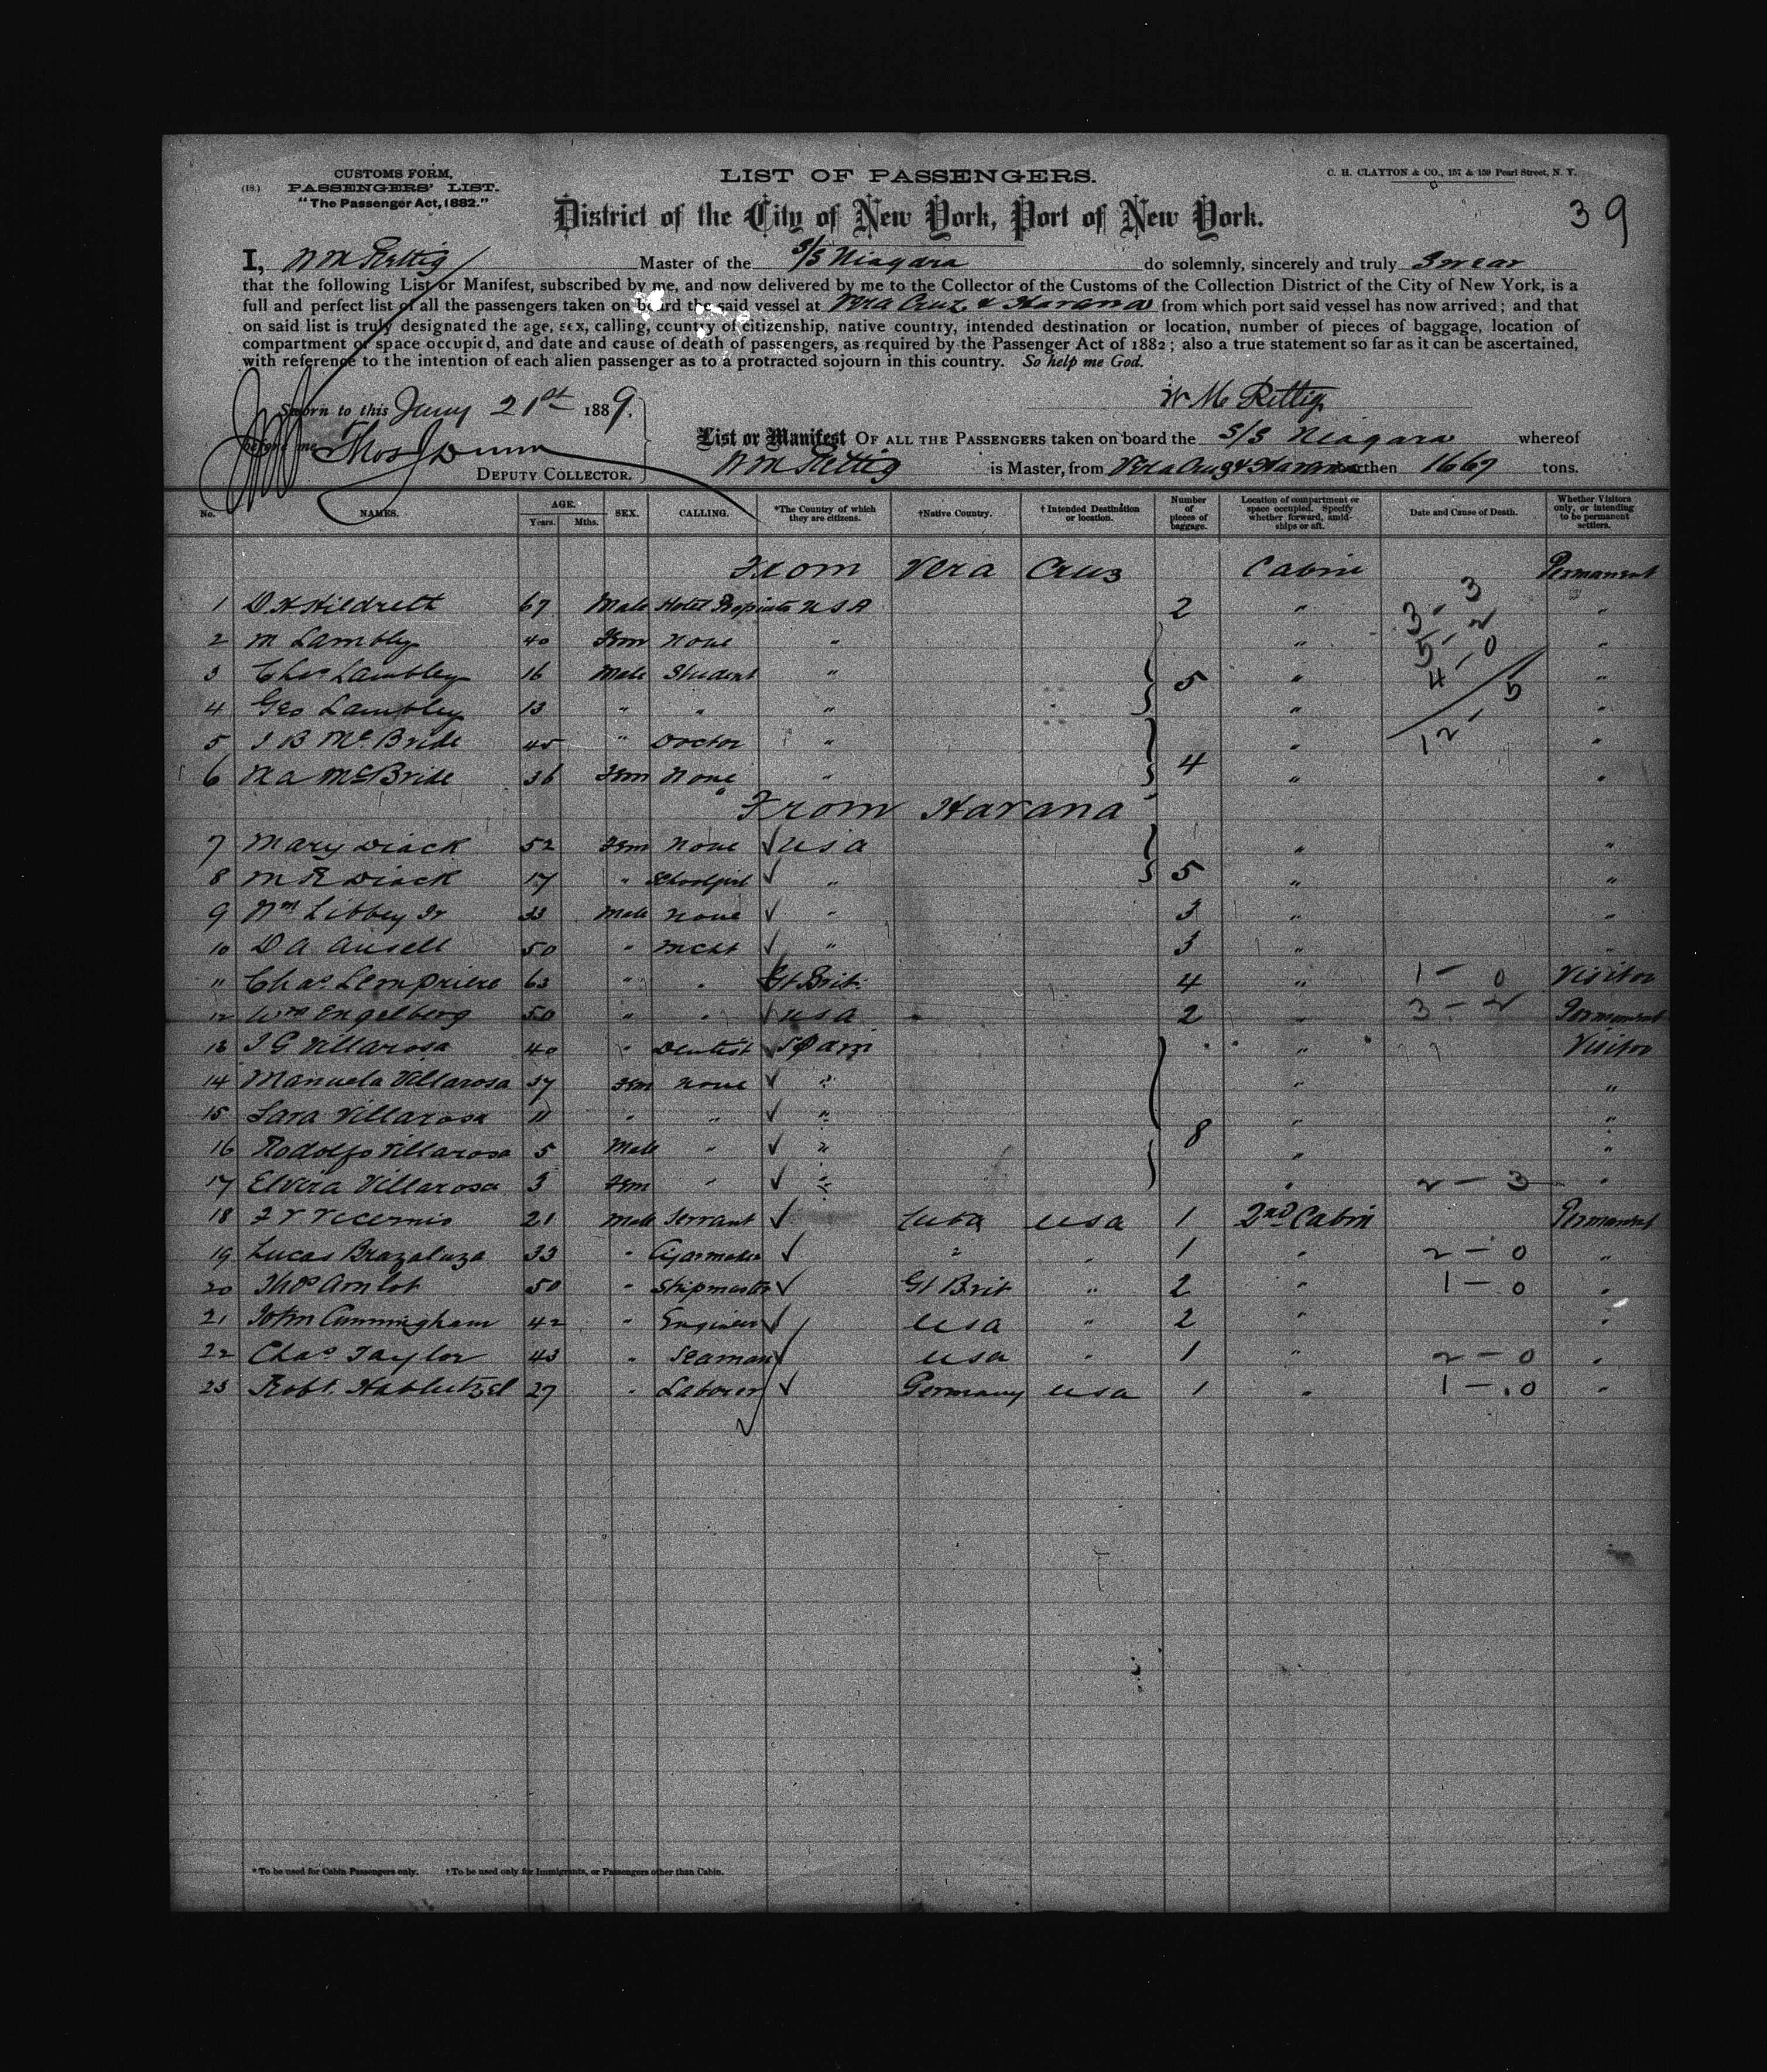 CUSTOMS FORM,
(18.) PASSENGERS' LIST.
"The Passenger Act, 1882."
LIST OF PASSENGERS.
C. H. CLAYTON & CO., 157 & 159 Pearl Street, N. Y.
District of the City of New York, Port of New York.
39
I, W M Rettig Master of the S/S Niagara do solemnly, sincerely and truly Swear
that the following List or Manifest, subscribed by me, and now delivered by me to the Collector of the Customs of the Collection District of the City of New York, is a
full and perfect list of all the passengers taken on board the said vessel at Vera Cruz & Havana from which port said vessel has now arrived; and that
on said list is truly designated the age, sex, calling, country of citizenship, native country, intended destination or location, number of pieces of baggage, location of
compartment or space occupied, and date and cause of death of passengers, as required by the Passenger Act of 1882; also a true statement so far as it can be ascertained,
with reference to the intention of each alien passenger as to a protracted sojourn in this country. So help me God.
W M Rettig
Sworn to this Jany 21st 1889,
before me Thos J Dunn
DEPUTY COLLECTOR.
List or Manifest OF ALL THE PASSENGERS taken on board the S/S Niagara whereof
W M Rettig is Master, from Vera Cruz & Havana burthen 1667 tons.
No. NAMES. AGE. Years. Mths. SEX. CALLING. *The Country of which they are citizens. †Native Country. †Intended Destination or location. Number of pieces of baggage. Location of compartment or space occupied. Specify whether forward, amidships or aft. Date and Cause of Death. Whether Visitors only, or intending to be permanent settlers.
From Vera Cruz Cabin Permanent
1 D H Hildreth 67 Male Hotel Propietor USA 2 " 3 - 3 "
2 M Lambley 40 Fem None " " 5 - 2 "
3 Chas Lambley 16 Male Student " 5 " 4 - 0 "
4 Geo Lambley 13 " " " " 12 - 5 "
5 J B McBride 45 " Doctor " " "
6 N a McBride 36 Fem None " 4 " "
From Havana
7 Mary Diack 52 Fem None USA " "
8 M E Diack 17 " Schoolgirl " 5 " "
9 Wm Libbey Jr 33 Male None " 3 " "
10 D A Ansell 50 " Mcht " 3 " "
" Chas Lempriere 63 " " Gt Brit 4 " 1 - 0 Visitor
12 Wm Engelberg 50 " " USA 2 " 3 - 2 Permanent
13 J G Villarosa 40 " Dentist Spain " Visitor
14 Manuela Villarosa 37 Fem None " " "
15 Sara Villarosa 11 " " " " "
16 Rodolfo Villarosa 5 Male " " 8 " "
17 Elvira Villarosa 3 Fem " " " 2 - 3 "
18 21 Male Servant Cuba USA 1 2nd Cabin Permanent
19 Lucas 33 " Cigarmaker " " 1 " 2 - 0 "
20 Thos 50 " Shipmaster Gt Brit " 2 " 1 - 0 "
21 John Cunningham 42 " Engineer USA " 2 " "
22 Chas Taylor 43 " Seaman USA " 1 " 2 - 0 "
23 Robt Hablutzel 27 " Laborer Germany USA 1 " 1 - 0 "
* To be used for Cabin Passengers only. † To be used only for Immigrants, or Passengers other than Cabin.